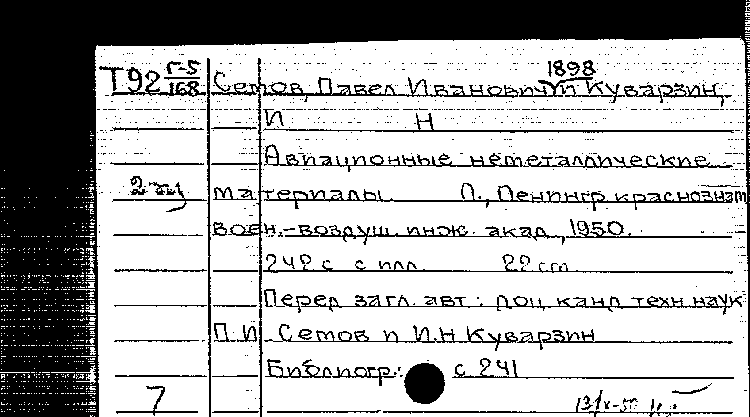 1898
Т92 Г-5/168 Сетов, Павел Иванович и Куварзин,
И Н
Авиационные неметаллические
2 экз материалы Л., Ленингр краснознам
воен.-воздуш. инж. акад, 1950.
242 с с илл. 22 cm
Перед загл. авт: доц канд техн наук
П И Сетов и И.Н Куварзин
Библиогр.: с 241
7